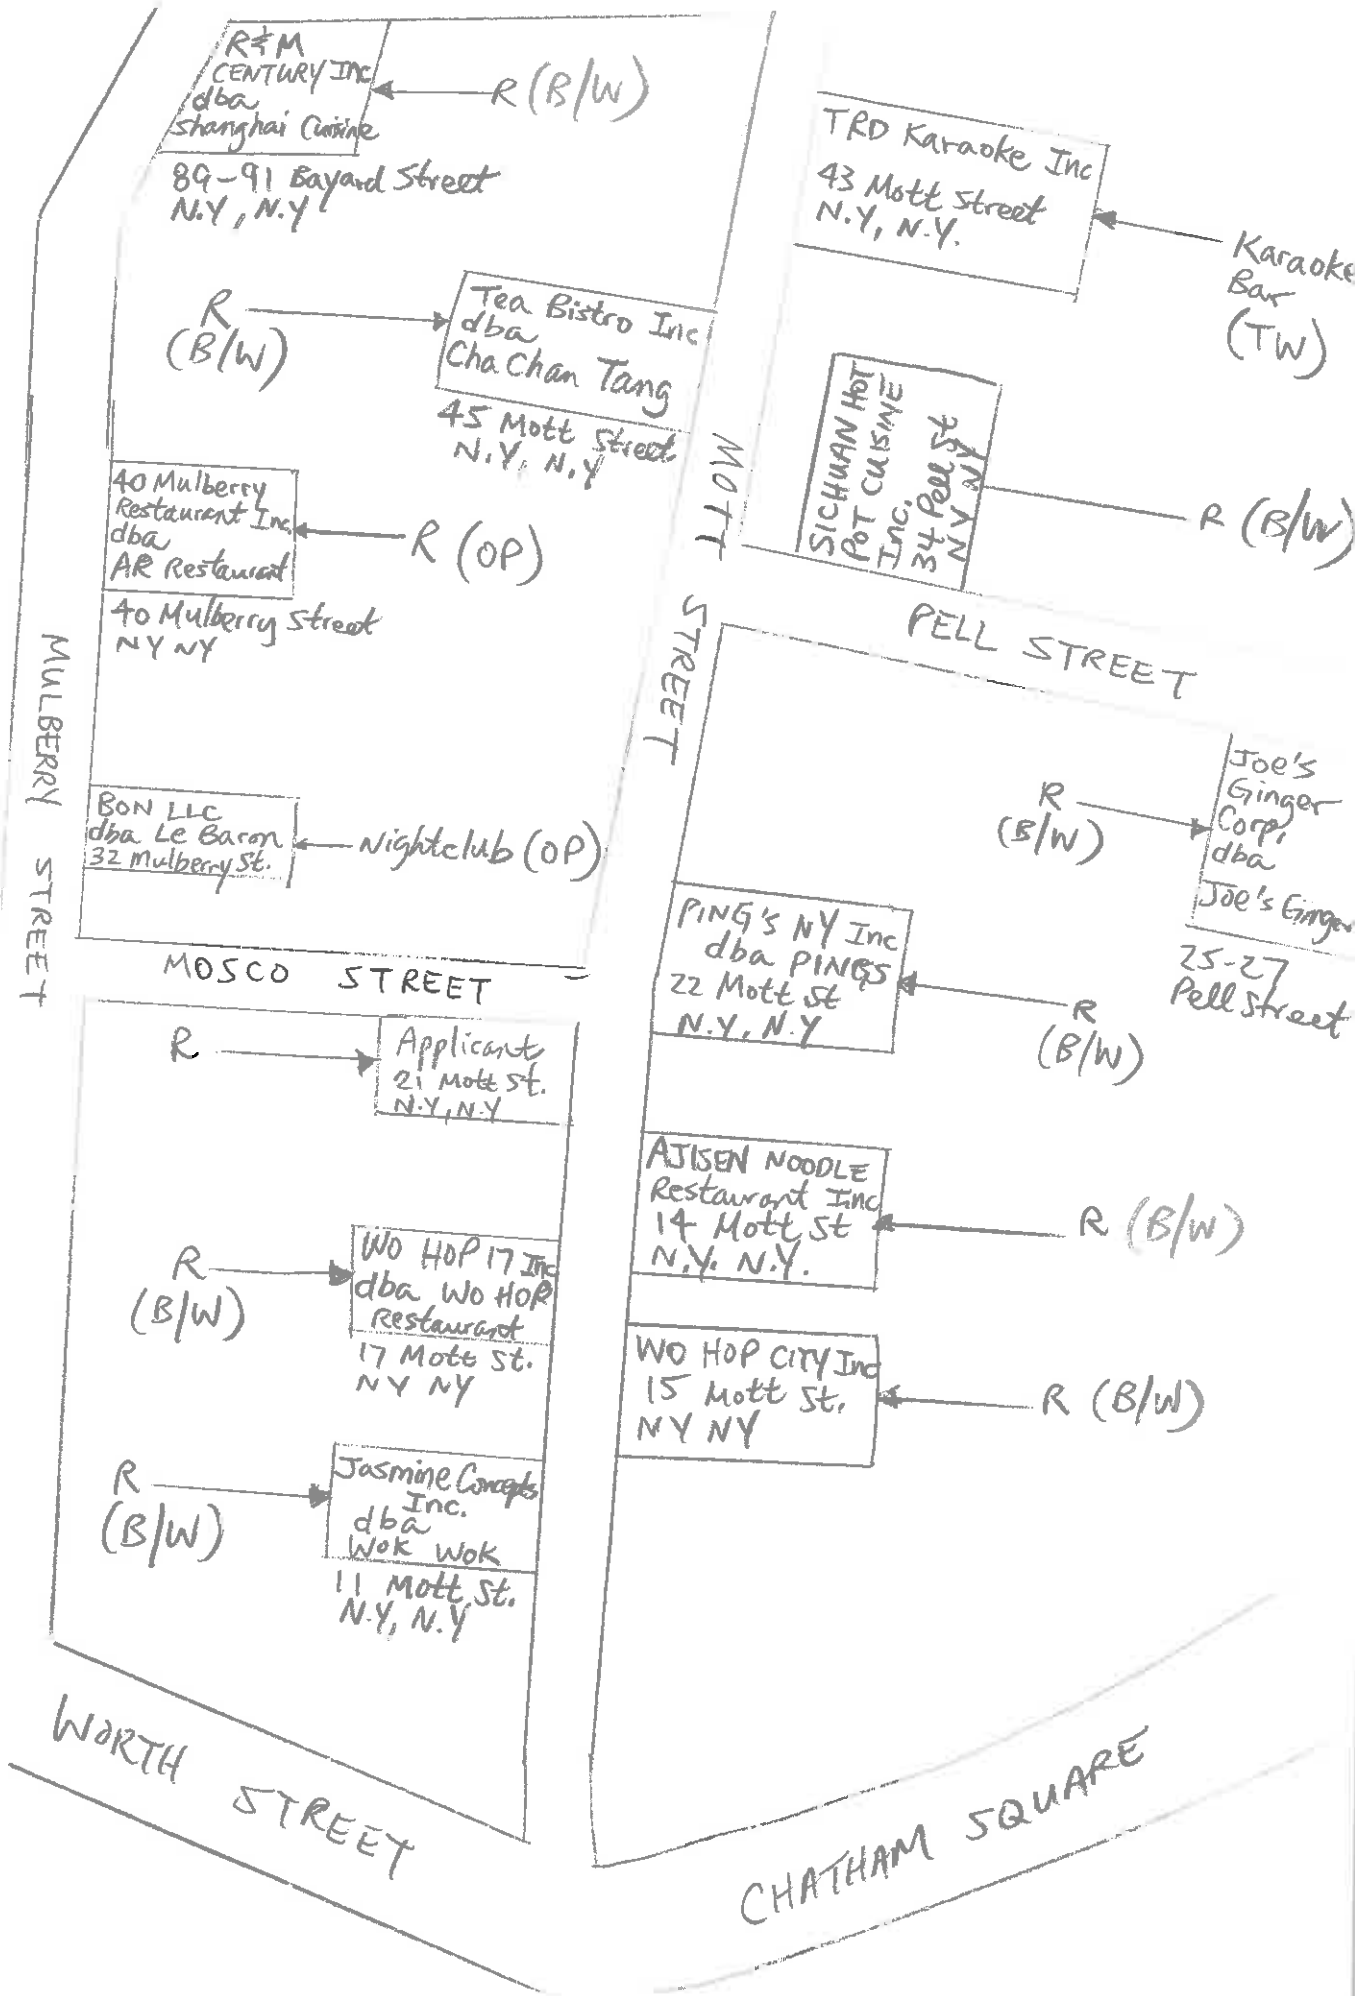 R&M
CENTURY Inc
dba
Shanghai Cuisine
R (B/W)
89-91 Bayard Street
N.Y, N.Y
TRD Karaoke Inc
43 Mott Street
N.Y, N.Y.
Karaoke
Bar
(TW)
R
(B/W)
Tea Bistro Inc
dba
Cha Chan Tang
45 Mott Street
N.Y, N.Y
SICHUAN HOT
POT CUISINE
Inc.
34 Pell St
NY NY
R (B/W)
MOTT STREET
40 Mulberry
Restaurant Inc.
dba
AR Restaurant
R (OP)
40 Mulberry Street
NY NY
PELL STREET
MULBERRY STREET
BON LLC
dba Le Baron
32 Mulberry St.
Nightclub (OP)
R
(B/W)
Joe's
Ginger
Corp.
dba
Joe's Ginger
25-27
Pell Street
PING'S NY Inc
dba PINGS
22 Mott St
N.Y, N.Y
R
(B/W)
MOSCO STREET
R
Applicant
21 Mott St.
N.Y, N.Y
AJISEN NOODLE
Restaurant Inc
14 Mott St
N.Y. N.Y.
R (B/W)
R
(B/W)
WO HOP 17 Inc
dba WO HOP
Restaurant
17 Mott St.
NY NY
WO HOP CITY Inc
15 Mott St.
NY NY
R (B/W)
R
(B/W)
Jasmine Concepts
Inc.
dba
Wok Wok
11 Mott St.
N.Y, N.Y
WORTH STREET
CHATHAM SQUARE